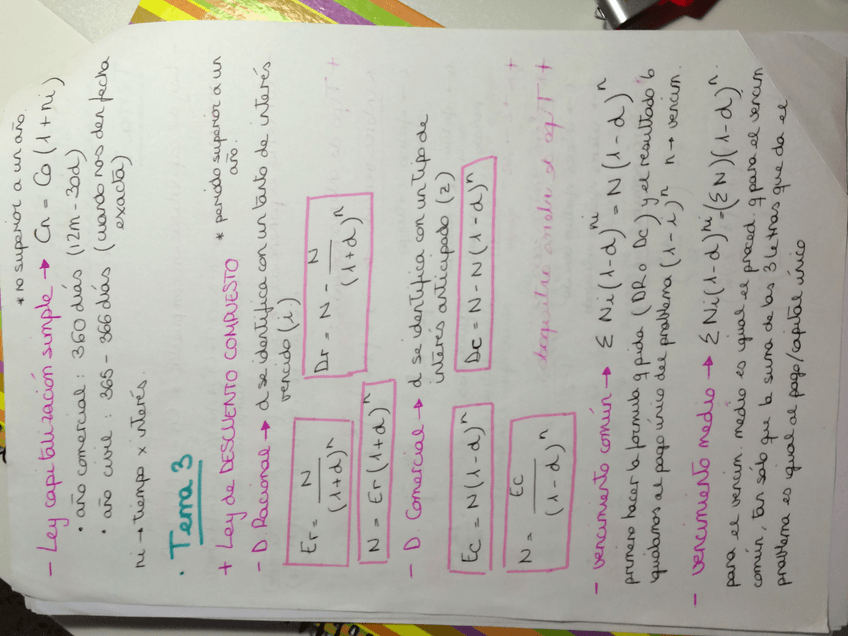 * no superior a un año.
- Ley capitalización simple → Cn = Co (1+ni)
• año comercial : 360 días (12m - 30d)
• año civil : 365 - 366 días (cuando nos den fecha
exacta)
ni → tiempo x interés.
• Tema 3
+ Ley de DESCUENTO COMPUESTO * periodo superior a un
año.
- D Racional → d se identifica con un tanto de interés
vencido (i)
Er = N / (1+d)^n
Dr = N - N / (1+d)^n
N = Er (1+d)^n
- D. Comercial → d se identifica con un tipo de
interés anticipado (z)
Ec = N (1-d)^n
Dc = N - N (1-d)^n
N = Ec / (1-d)^n
- vencimiento común → Σ Ni (1-d)^ni = N (1-d)^n
primero hacer la formula q pida (DR o DC) y el resultado lo
igualamos al pago único del problema (1-i)^n n → vencim.
- vencimiento medio → Σ Ni (1-d)^ni = (Σ N) (1-d)^n.
para el vencim. medio es igual el proced. q para el vencim
común, tan sólo que la suma de las 3 letras que da el
problema es igual al pago/capital único